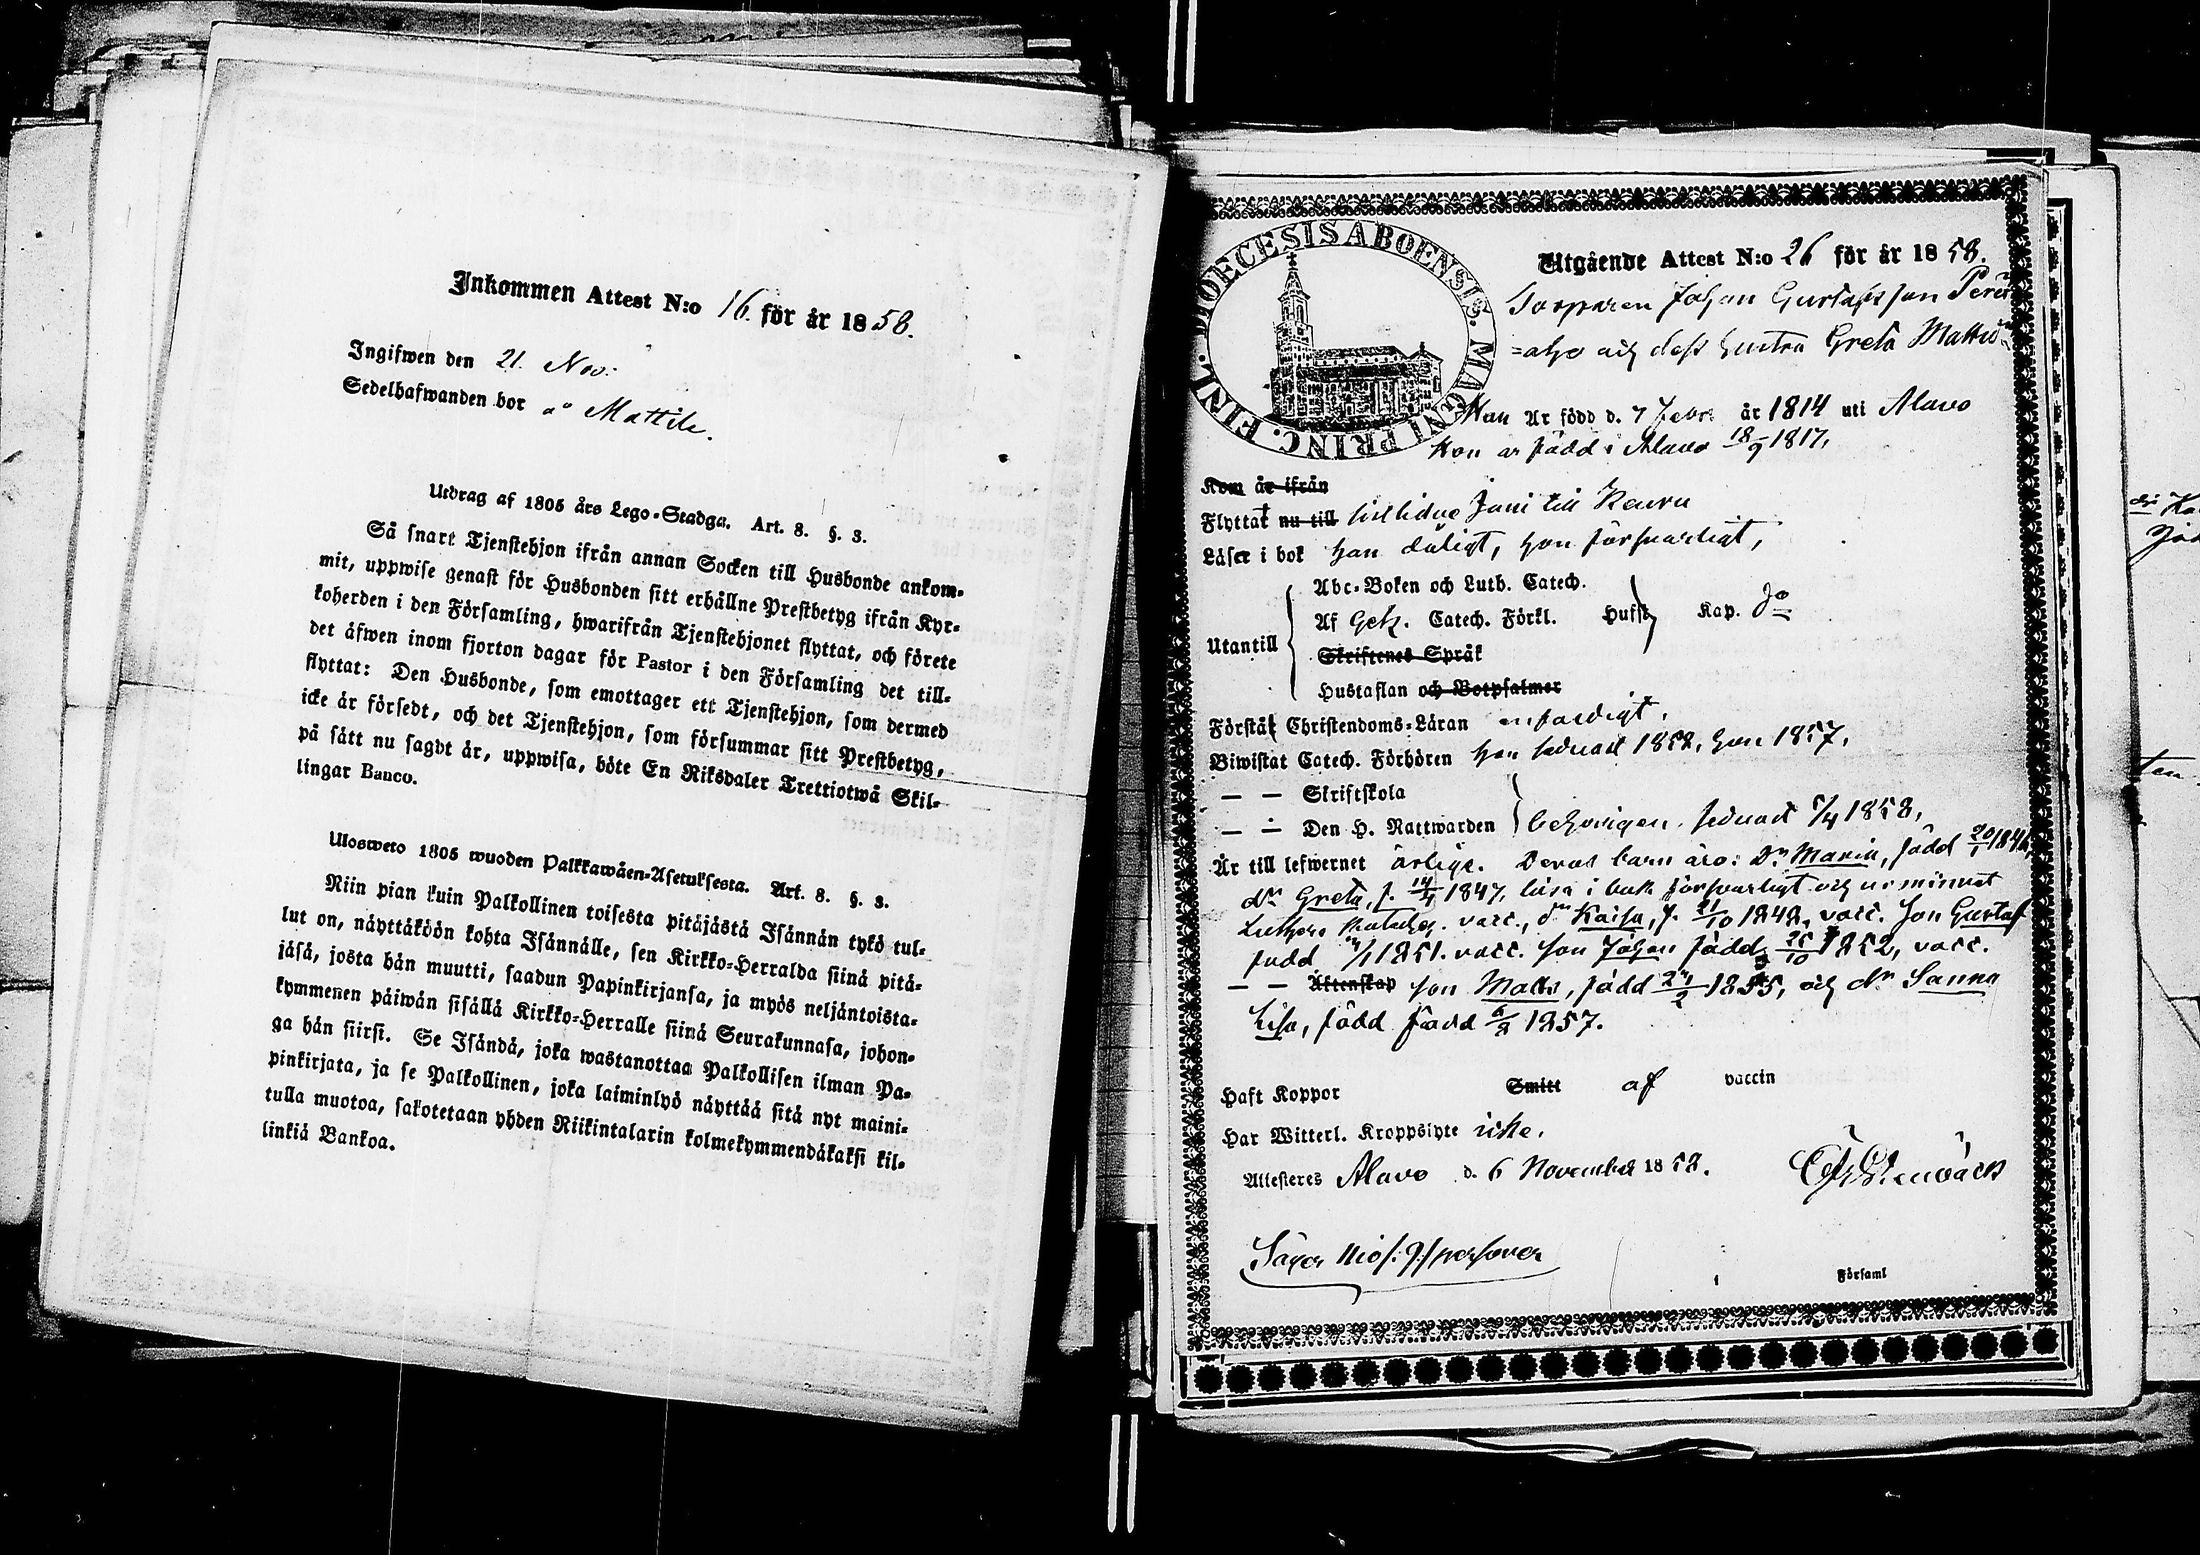 Inkommen Attest N:o 16. för år 1858.
Ingifwen den 21. Nov:
Sedelhafwanden bor å Mattila.
Utdrag af 1805 års Lego-Stadga. Art. 8. §. 3.
Så snart Tjenstehjon ifrån annan Socken till Husbonde ankom-
mit, uppwise genast för Husbonden sitt erhållne Prestbetyg ifrån Kyr-
koherden i den Församling, hwarifrån Tjenstehjonet flyttat, och förete
det äfwen inom fjorton dagar för Pastor i den Församling det till-
flyttat: Den Husbonde, som emottager ett Tjenstehjon, som dermed
icke är försedt, och det Tjenstehjon, som försummar sitt Prestbetyg,
på sätt nu sagdt är, uppwisa, böte En Riksdaler Trettiotwå Skil-
lingar Banco.
Ulosweto 1805 wuoden Palkkawäen-Asetuksesta. Art. 8. §. 3.
Niin pian kuin Palkollinen toisesta pitäjästä Isännän tykö tul-
lut on, näyttäköön kohta Isännälle, sen Kirkko-Herralda siinä pitä-
jäsä, josta hän muutti, saadun Papinkirjansa, ja myös neljäntoista-
kymmenen päiwän sisällä Kirkko-Herralle siinä Seurakunnasa, johon-
ga hän siirsi. Se Isändä, joka wastanottaa Palkollisen ilman Pa-
pinkirjata, ja se Palkollinen, joka laiminlyö näyttää sitä nyt maini-
tulla muotoa, sakotetaan yhden Riikintalarin kolmekymmendäkaksi kil-
linkiä Bankoa.
DIOECESIS ABOENSIS. MAGNI PRINC. FINL.
Utgående Attest N:o 26 för år 1858.
Torparen Johan Gustafsson Perä
=aho och dess hustru Greta Matts
Han Är född d. 7 Febr. år 1814 uti Alavo
Hon är född i Alavo 18/9 1817,
Kom är ifrån
Flyttat nu till sistlidne Juni till Keuru
Läser i bok han dåligt, hon försvarligt,
Abc-Boken och Luth. Catech.
Utantill Af Getz. Catech. Förkl. Hufst Kap. do
Skriftenes Språk
Hustaflan och Botpsalmer
Förstår Christendoms-Läran enfaldigt.
Biwistat Catech. Förhören han sednast 1858, hon 1857,
— — Skriftskola
— — Den H. Nattwarden behörigen, sednast 5/4 1858,
Är till lefwernet ärlige. Deras barn äro: Dr Maria, född 20/1
dr Greta, f. 1847, läsa i bok försvarligt och ur minnet
Luthers vacc., dr Kaisa, f. 21/10 1848, vacc. Son Gustaf
född 1851. vacc. son Johan född /10 1852, vacc.
— — Äktenskap son Matts, född /2 1855, och dr Sanna
Lisa, född född 6/8 1857.
Haft Koppor Smitt af vaccin
Har Witterl. Kroppslyte icke.
Attesteres Alavo d. 6 November 1858.
Säger nio /: 9 :/ personer
Församl